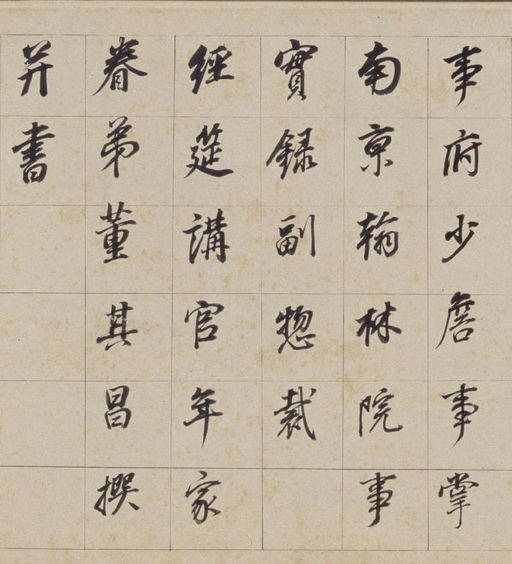 事府少詹事掌
南京翰林院事
實録副惣裁
經筵講官年家
眷弟董其昌撰
并書